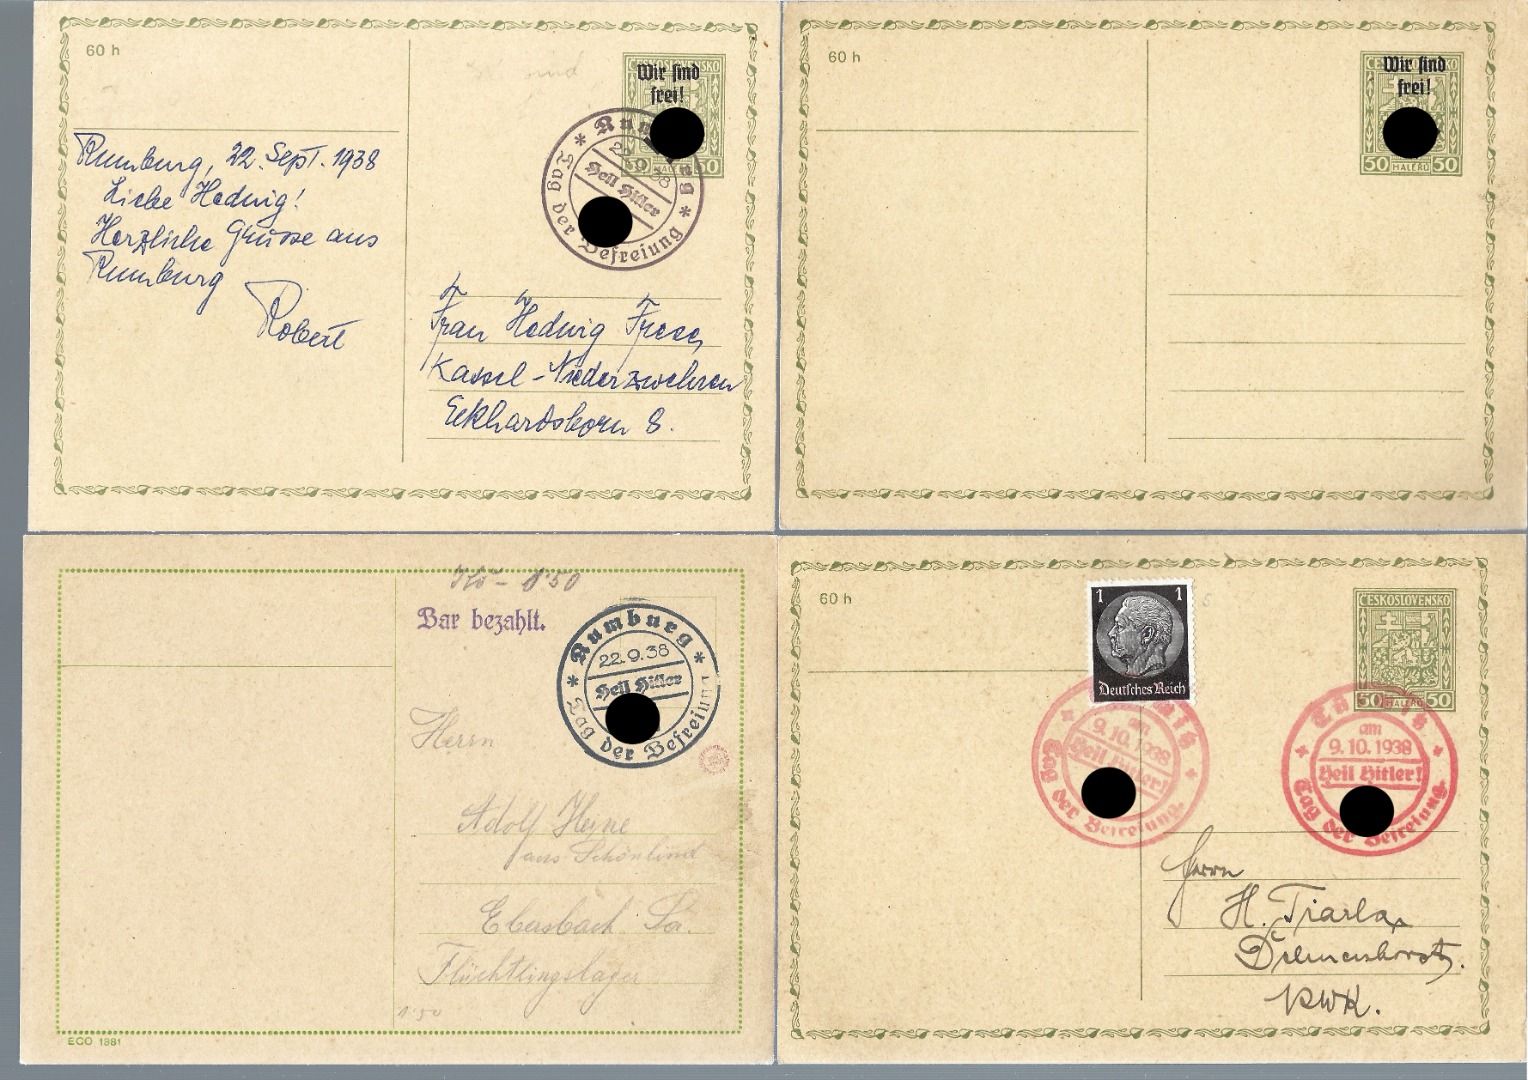 60 h
ČESKOSLOVENSKO
Wir sind
frei!
50 HALÉŘŮ 50
* Rumburg *
22.9.38
Heil Hitler
Tag der Befreiung
Rumburg, 22. Sept. 1938
Liebe Hedwig!
Herzliche Grüsse aus
Rumburg
Robert
Frau Hedwig
Kassel-Niederzwehren
Eckhardsborn 8.
60 h
ČESKOSLOVENSKO
Wir sind
frei!
50 HALÉŘŮ 50
1'50
Bar bezahlt.
* Rumburg *
22.9.38
Heil Hitler
Tag der Befreiung
Herrn
Adolf Heine
aus Schönlind
Ebersbach Sa.
Flüchtlingslager
1'50
EGO 1881
60 h
1 1
Deutsches Reich
ČESKOSLOVENSKO
50 HALÉŘŮ 50
am
9.10.1938
Heil Hitler!
Tag der Befreiung
am
9.10.1938
Heil Hitler!
Tag der Befreiung
Herrn
H. Tiarla
Delmenhorst.
NWK.